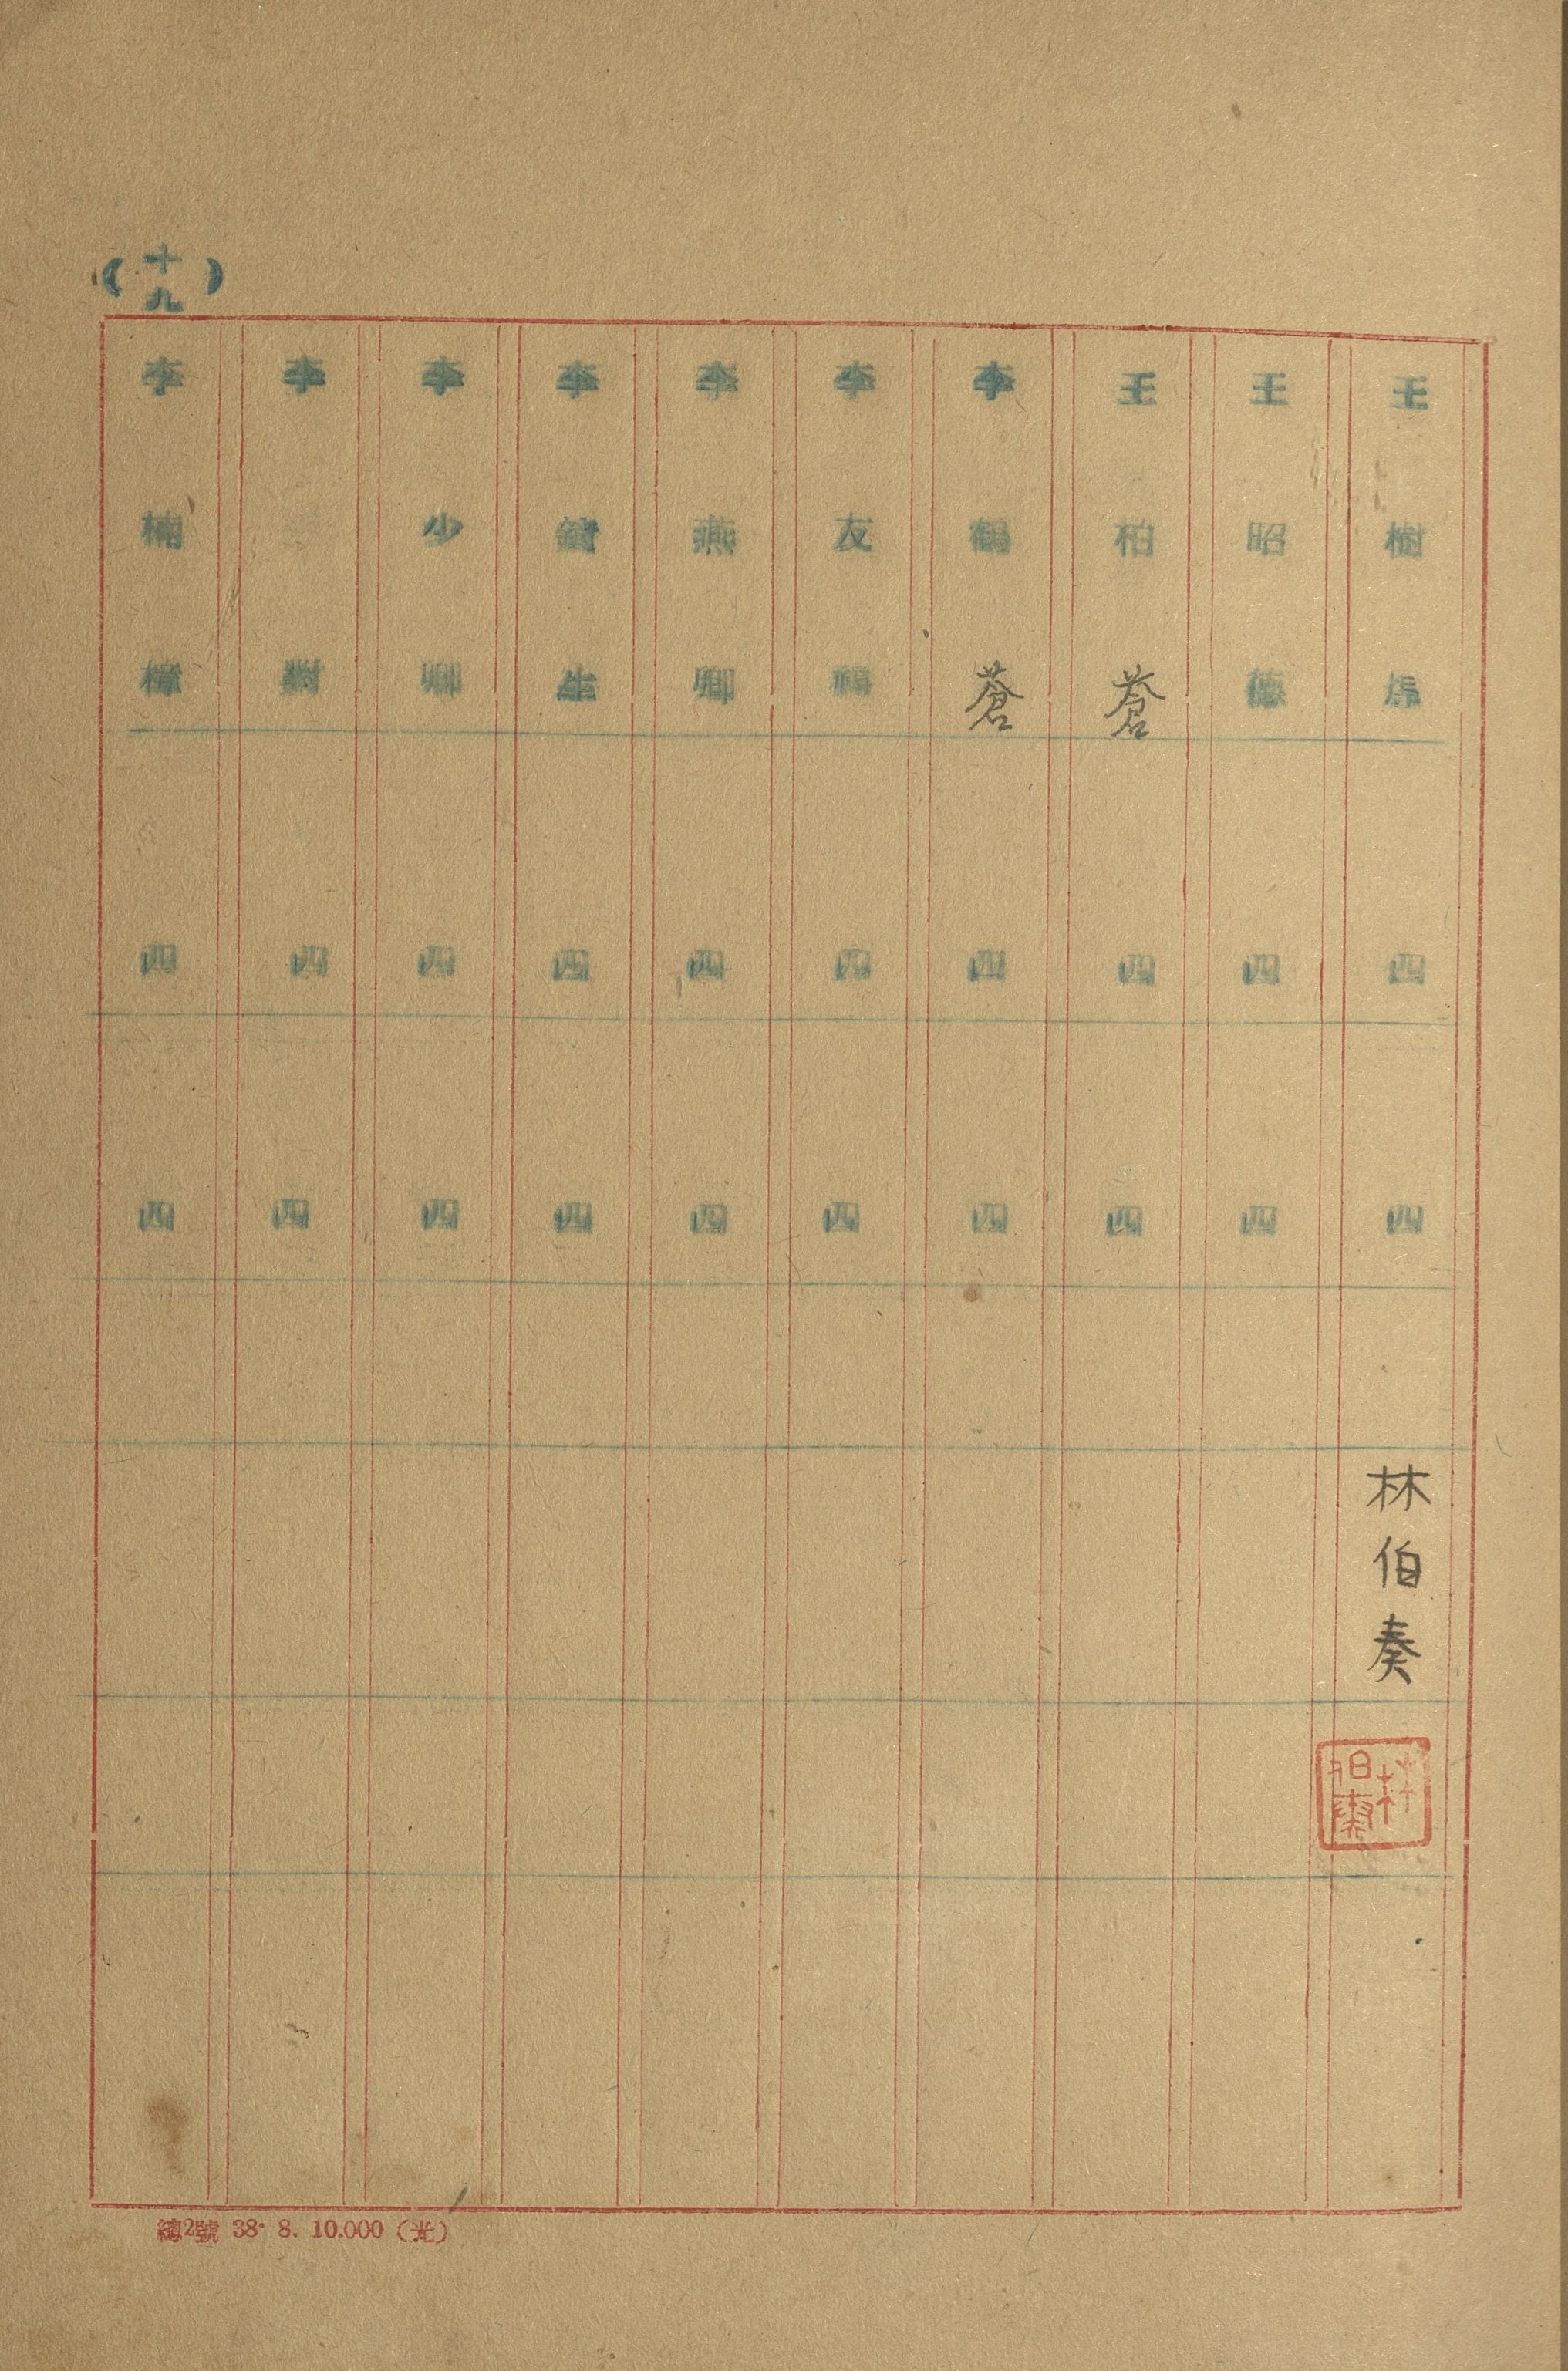 王樹馬 四 四 林伯奏
林伯奏
王昭德 四 四
王柏蒼 四 四
李鶴蒼 四 四
李友鶴 四 四
李燕卿 四 四
李生 四 四
李少卿 四 四
李對 四 四
李楠樟 四 四
(十九)
總2號 38. 8. 10.000 (光)